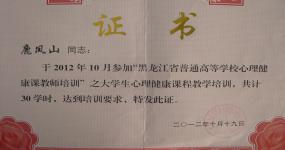 证 书
鹿凤山 同志：
于 2012 年 10 月参加“黑龙江省普通高等学校心理健
康课教师培训”之大学生心理健康课程教学培训，共计
30 学时，达到培训要求，特发此证。
二〇一二年十月十九日